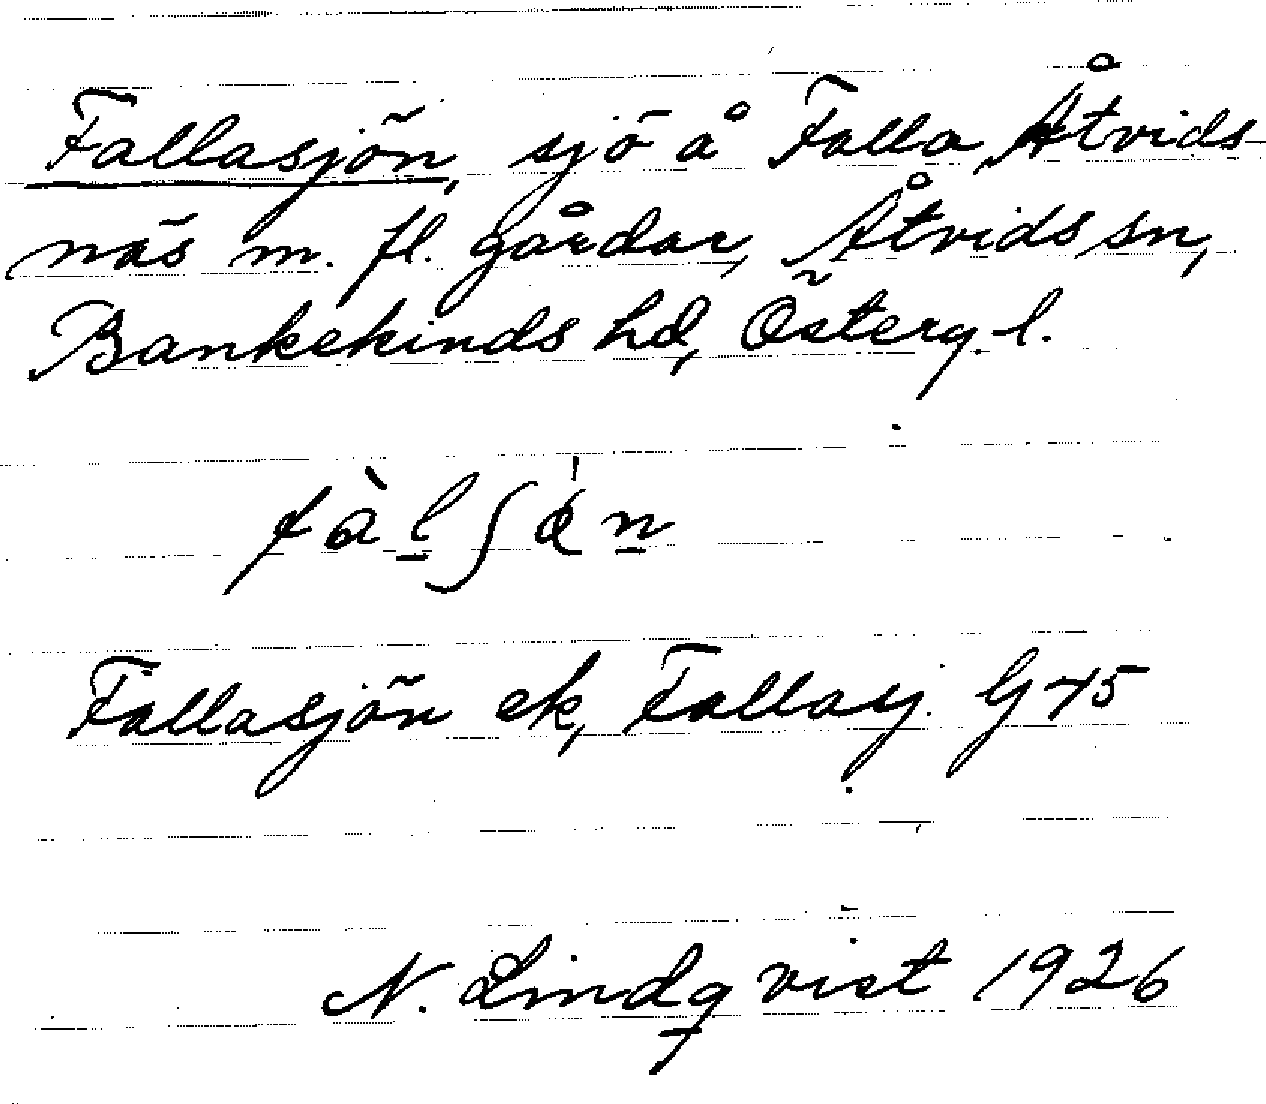 Fallasjön, sjö å Falla, Åtvids-
näs m. fl. gårdar, Åtvids sn,
Bankekinds hd, Österg. l.
Fallasjön ek, Fallasj. G 45
N. Lindqvist 1926